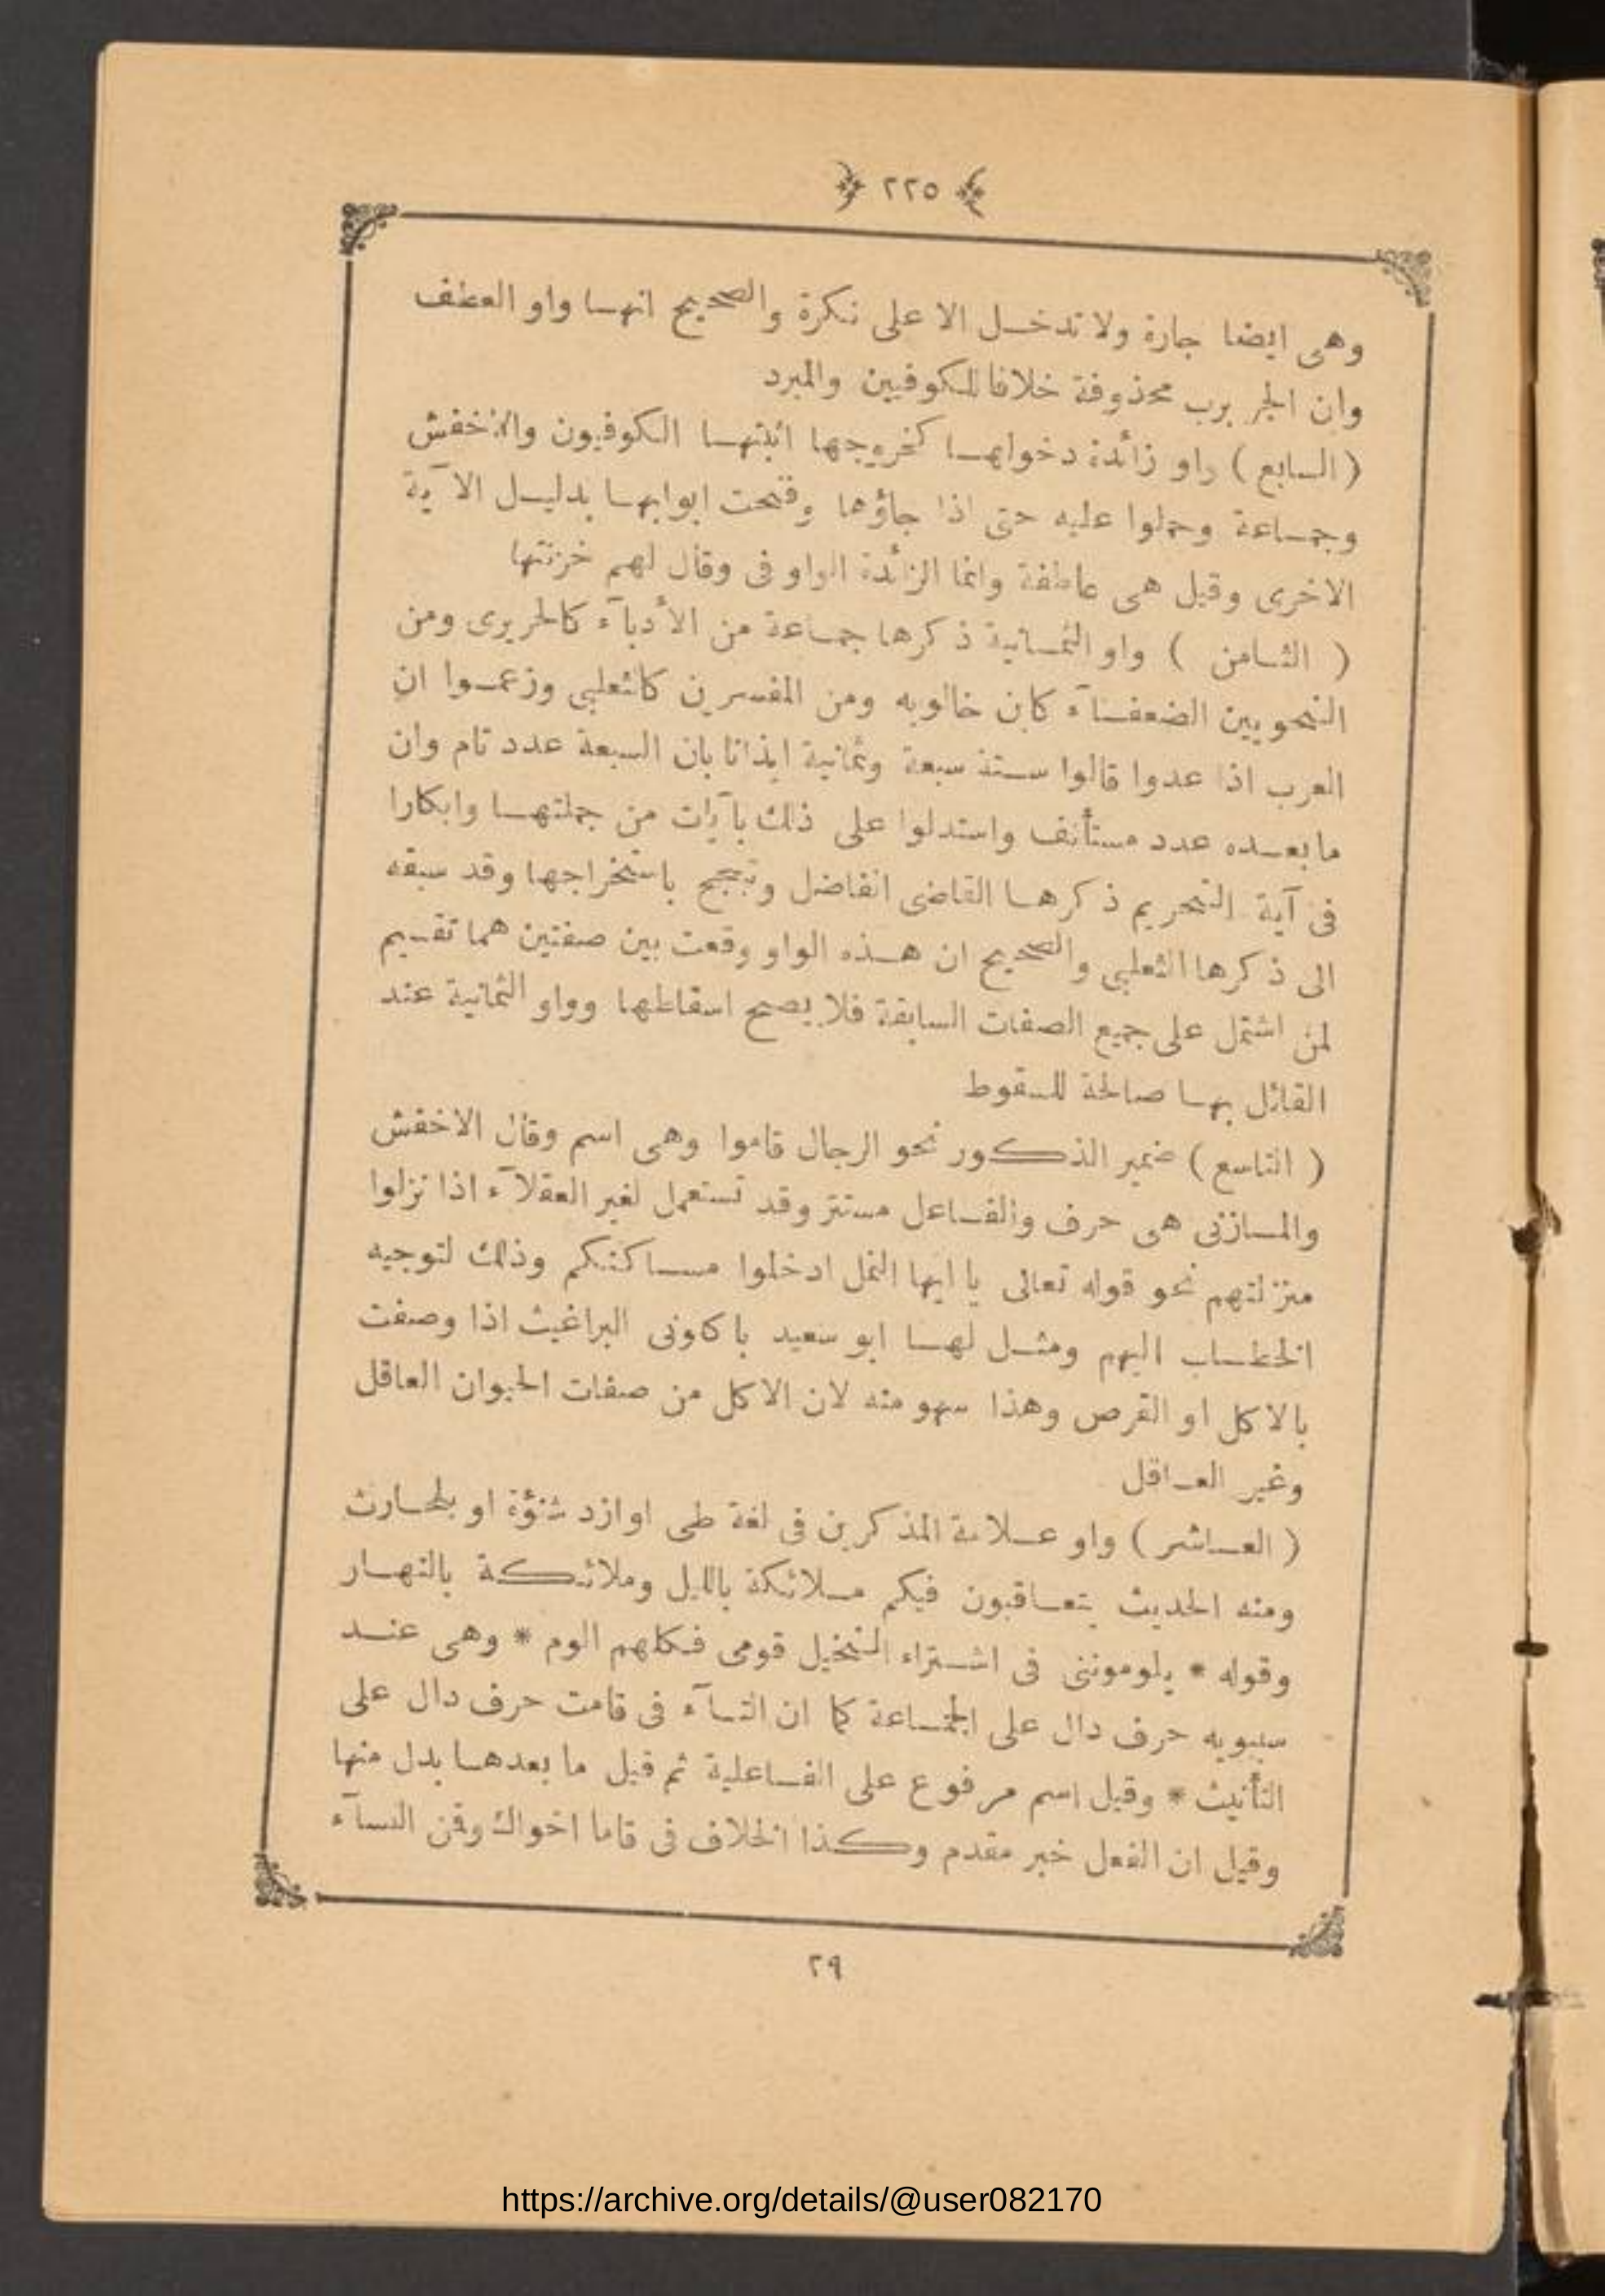 ﴿ ٢٢٥ ﴾
وهى ايضا جارة ولا تدخل الا على نكرة والصحيح انها واو العطف
وان الجر برب محذوفة خلافا للكوفيين والمبرد
( السابع ) واو زائدة دخولها كخروجها اثبتها الكوفيون والاخفش
وجماعة وحملوا عليه حتى اذا جاؤها وفتحت ابوابها بدليل الآية
الاخرى وقيل هى عاطفة وانما الزائدة الواو فى وقال لهم خزنتها
( الثامن ) واو الثمانية ذكرها جماعة من الأدبآء كالحريرى ومن
النحويين الضعفآء كابن خالويه ومن المفسرين كالثعلبى وزعموا ان
العرب اذا عدوا قالوا ستة سبعة وثمانية ايذانا بان السبعة عدد تام وان
ما بعده عدد مستأنف واستدلوا على ذلك بآيات من جملتها وابكارا
فى آية التحريم ذكرها القاضى الفاضل وتبجح باستخراجها وقد سبقه
الى ذكرها الثعلبى والصحيح ان هذه الواو وقعت بين صفتين هما تقسيم
لمن اشتمل على جميع الصفات السابقة فلا يصح اسقاطها وواو الثمانية عند
القائل بها صالحة للسقوط
( التاسع ) ضمير الذكور نحو الرجال قاموا وهى اسم وقال الاخفش
والمازنى هى حرف والفاعل مستتر وقد تستعمل لغير العقلآء اذا نزلوا
منزلتهم نحو قوله تعالى يا ايها النمل ادخلوا مساكنكم وذلك لتوجيه
الخطاب اليهم ومثل لها ابو سعيد باكلونى البراغيث اذا وصفت
بالاكل او القرص وهذا سهو منه لان الاكل من صفات الحيوان العاقل
وغير العاقل
( العاشر ) واو علامة المذكرين فى لغة طى او ازد شنؤة او بلحارث
ومنه الحديث يتعاقبون فيكم ملائكة بالليل وملائكة بالنهار
وقوله * يلوموننى فى اشتراء النخيل قومى فكلهم الوم * وهى عند
سيبويه حرف دال على الجماعة كما ان التآء فى قامت حرف دال على
التأنيث * وقيل اسم مرفوع على الفاعلية ثم قيل ما بعدها بدل منها
وقيل ان الفعل خبر مقدم وكذا الخلاف فى قاما اخواك وقمن النسآء
٢٩
https://archive.org/details/@user082170